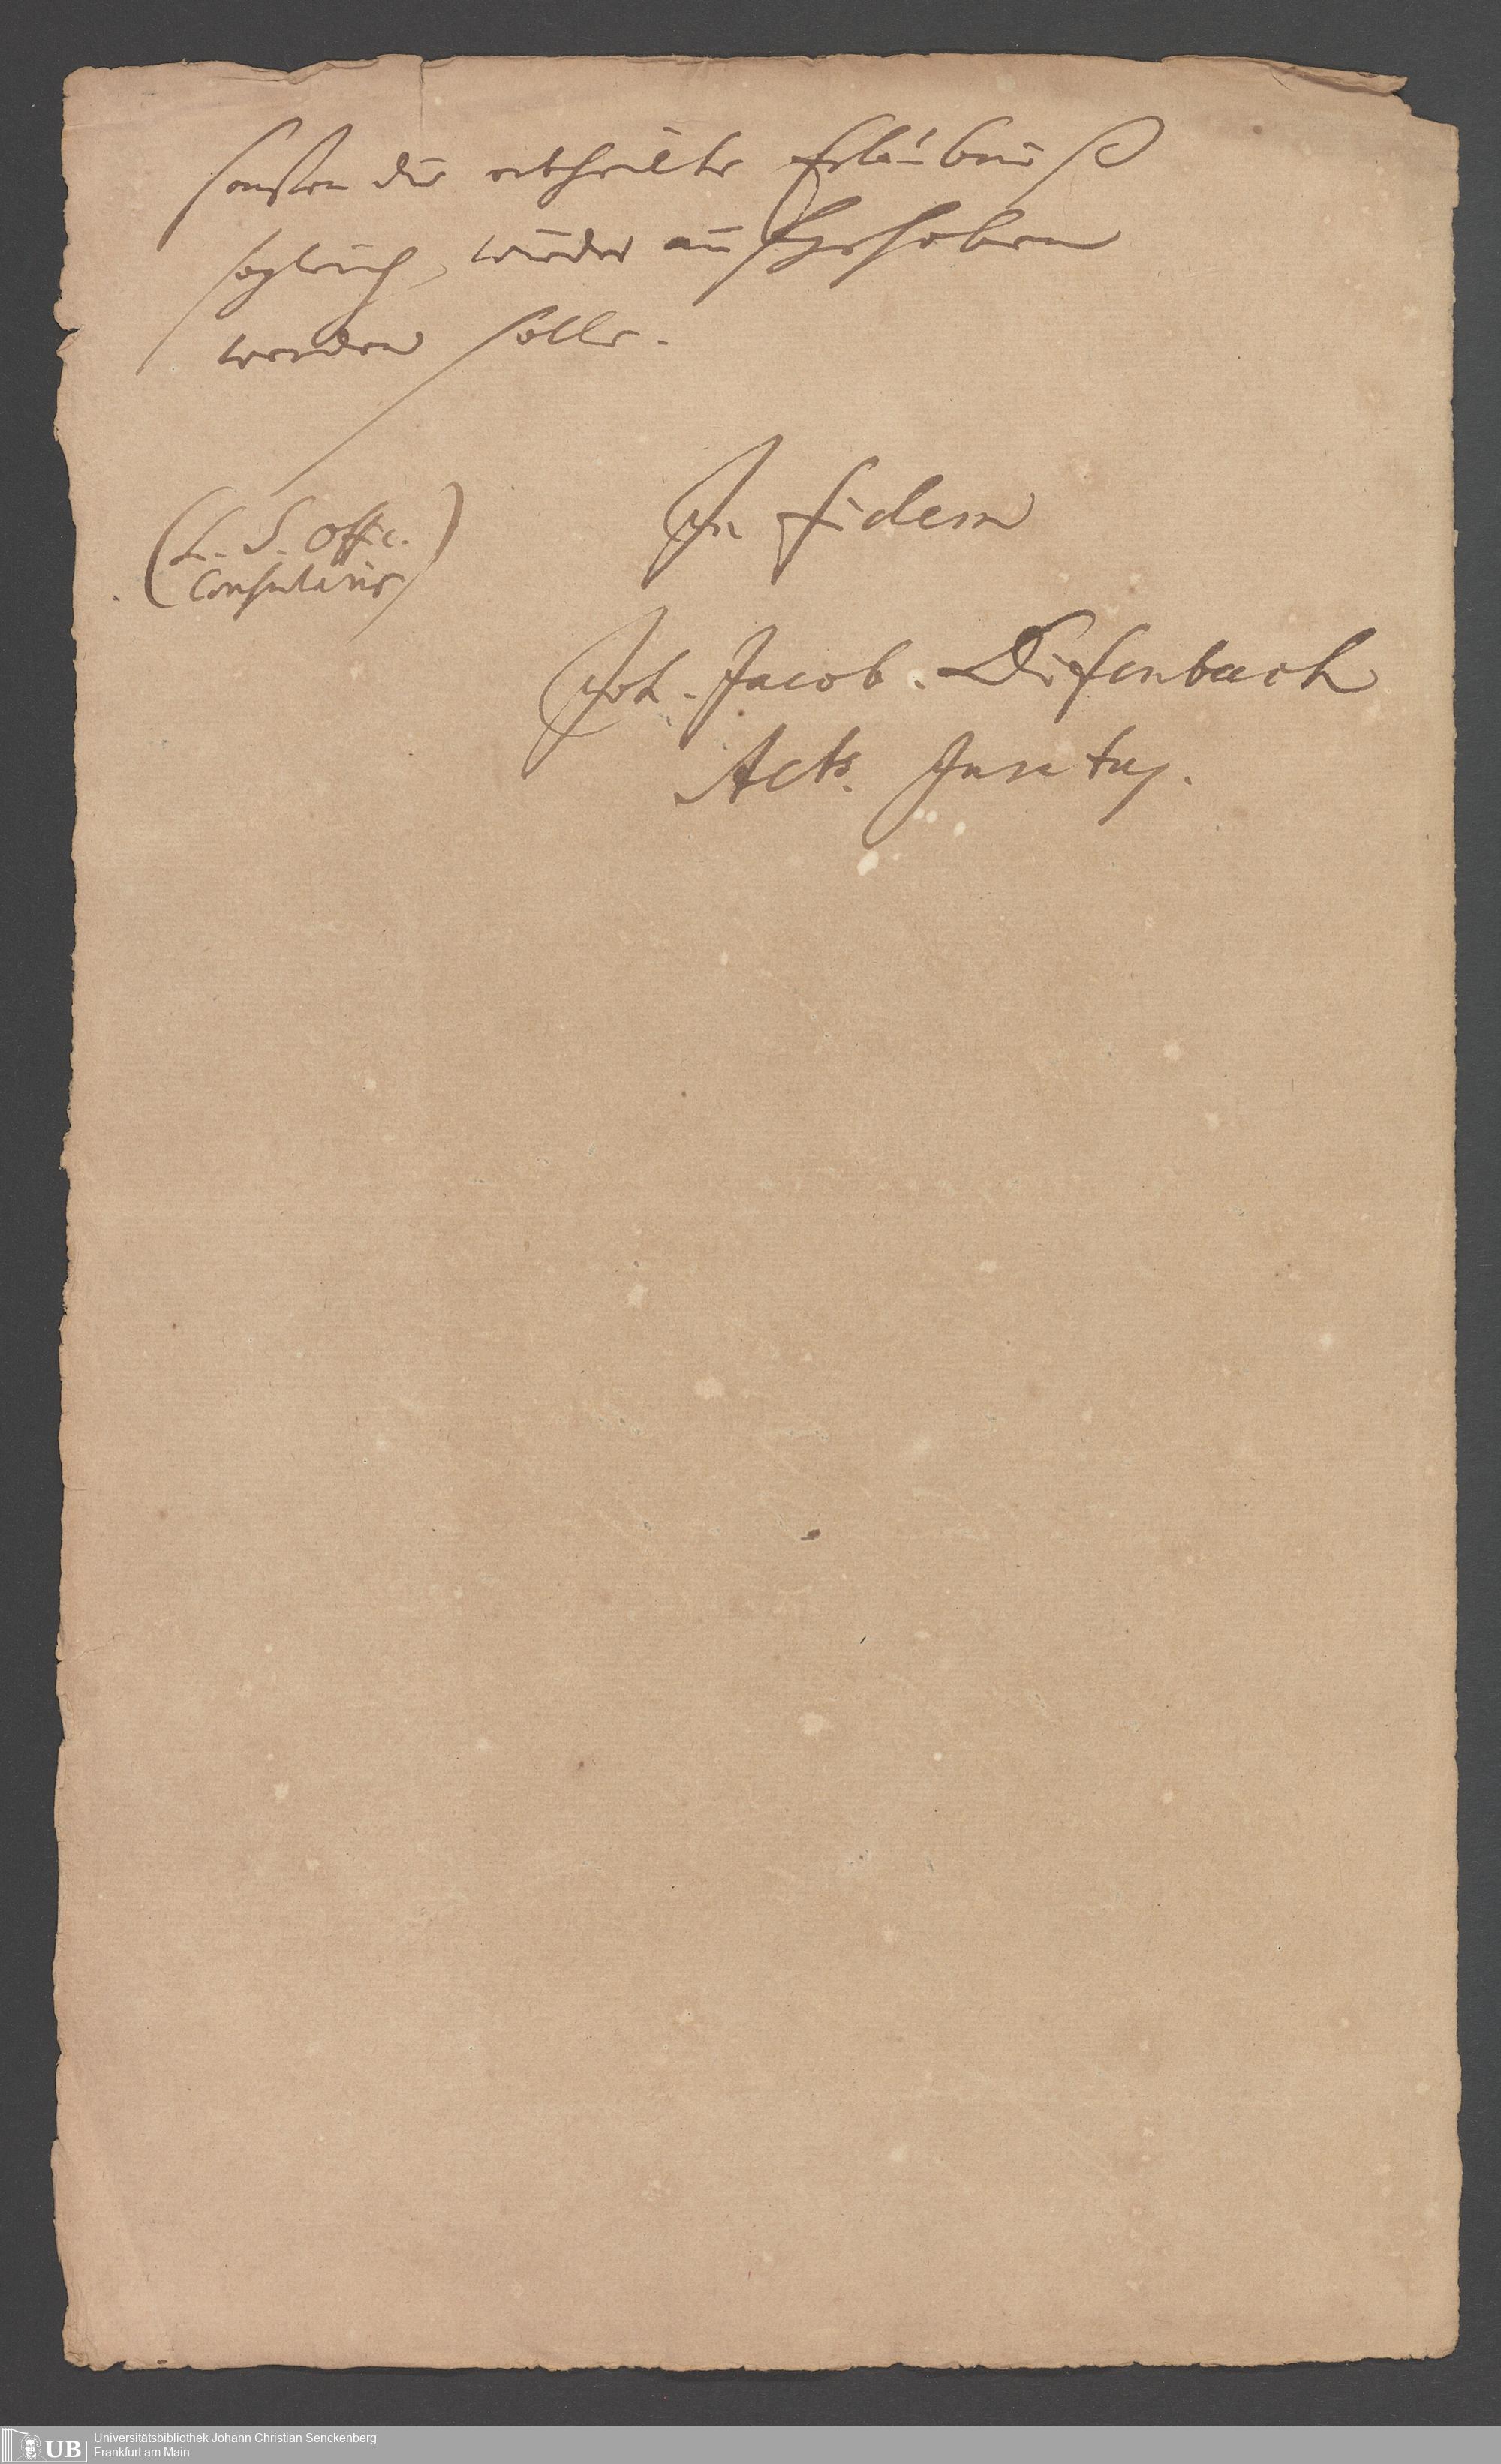 sonsten die ertheilte Erlaubnuß
sogleich, wieder aufgehoben
werden solle.
(L. S. Offic.
Consularis)
In fidem
Joh. Jacob. Diefenbach
Acts.
UB
Universitätsbibliothek Johann Christian Senckenberg
Frankfurt am Main